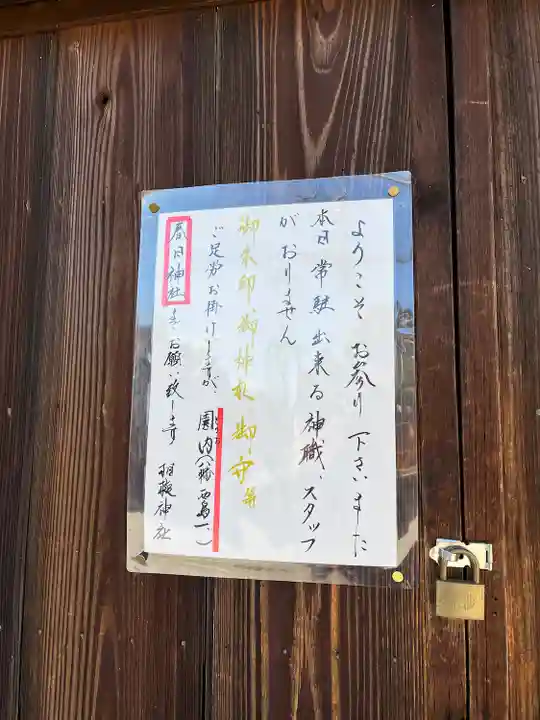 ようこそ お参り下さいました
本日常駐出来る神職、スタッフ
がおりません
御朱印、御神札、御守等
ご足労お掛けしますが、園内(西一)
春日神社までお願い致します
神社